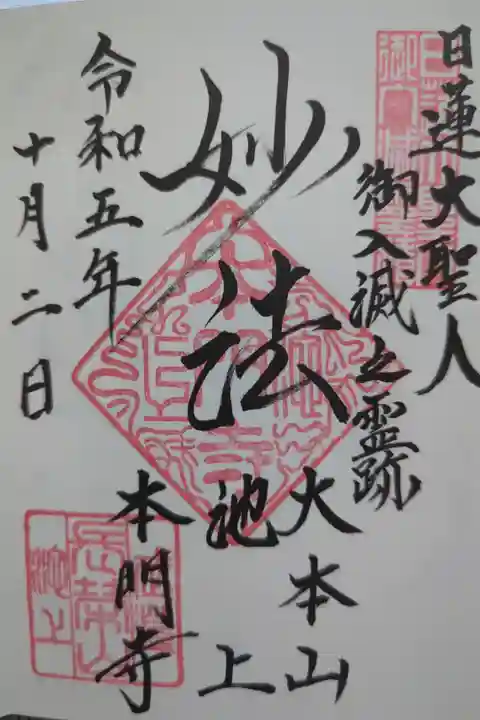 日蓮大聖人
御入滅之霊跡
妙法
大本山
池上
本門寺
令和五年
十月二日